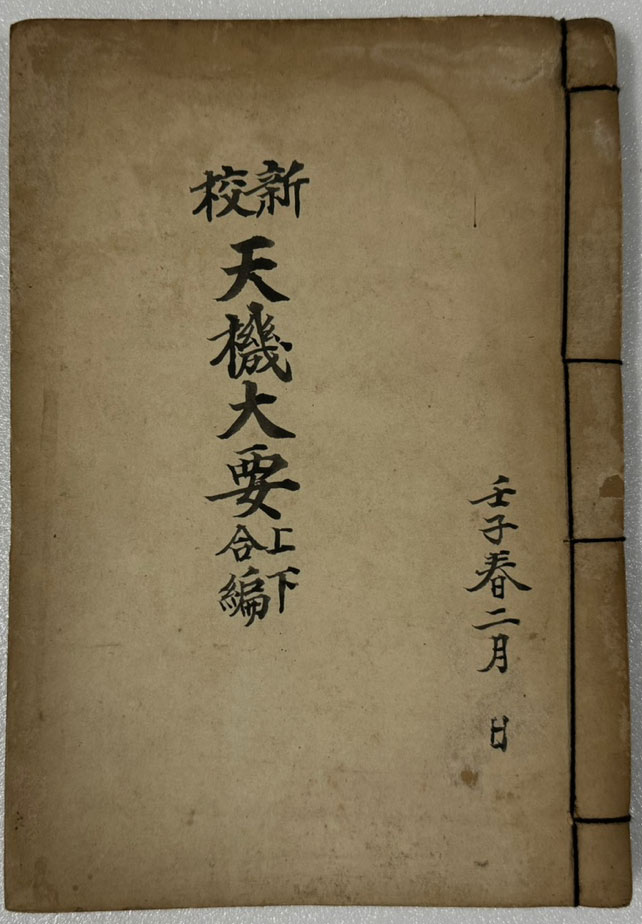 壬子春二月 日
新校
天機大要
上下合編